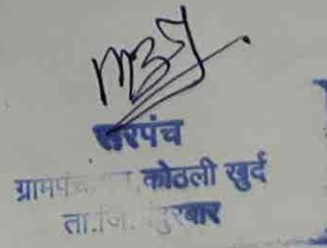 सरपंच
ग्रामपंचायत, कोठली खुर्द
ता.जि. नंदुरबार